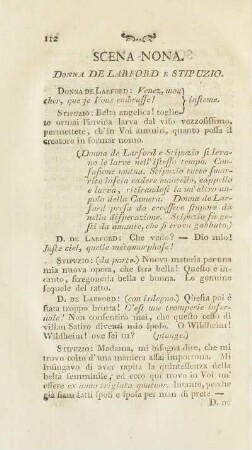 112
SCENA NONA.
DONNA DE LARFORD E STIPUZIO.
DONNA DE LARFORD: Venez, mon
cher, que je Vous embrasse! Insieme.
STIPUZIO: Beltà angelica! toglie-
te ormai l'invida larva dal viso vezzosissimo,
permettete, ch'in Voi ammiri, quanto possa il
creatore in formar uomo.
(Donna de Larford e Stipuzio si leva-
no le larve nell'istesso tempo. Con-
fusione mutua. Stipuzio tutto smar-
rito lascia cadere mantello, cappello
e larva, ritirandosi in un'altro ango-
lo della Camera. Donna de Lar-
ford presa da eccessiva stizza dà
nella disperazione. Stipuzio fa ge-
sti da amante, che si trova gabbato.)
D. DE LARFORD: Che vedo? — Dio mio!
Juste ciel, quelle métamorphose!
STIPUZIO: (da parte.) Nuova materia per una
mia nuova opera, che sarà bella! Questo è in-
canto, stregoneria bella e buona. Le gemino
sequele del ratto.
D. DE LARFORD: (con isdegno.) Questa poi è
stata troppo brutta! C'est une tromperie infer-
nale! Non consentirò mai, che questo ceffo di
villan Satiro diventi mio sposo. O Wildheim!
Wildheim! ove sei tu? (piange.)
STIPUZIO: Madama, mi bisogna dire, che mi
trovo colto d'una maniera assai importuna. Mi
lusingavo di aver rapita la quintessenza della
beltà femminile, ed ecco qui trovo in Voi un'
essere ex anno triginta quatuor. Intanto, perchè
già siam fatti sposi e sposa per man di prete —
D. DE